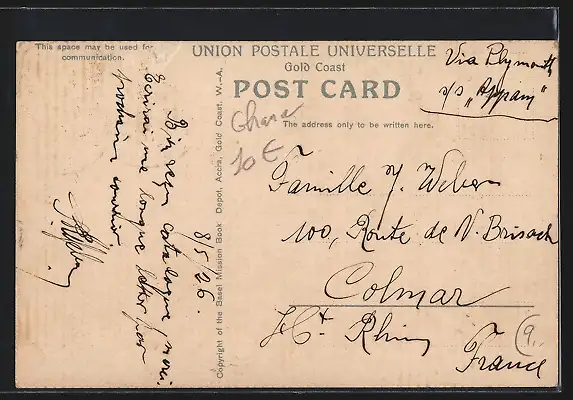 This space may be used for
communication.
UNION POSTALE UNIVERSELLE
Gold Coast
POST CARD
The address only to be written here.
Via Plymouth
s/s "Appam"
Ghana
10 E
Famille J. Weber
100, Route de N. Brisach
Colmar
Ht Rhin
France
(9.
8/5/26.
Bien reçu catalogue, merci.
Ecrirai une longue lettre par
prochain courrier
Copyright of the Basel Mission Book Depot, Accra, Gold Coast, W.-A.